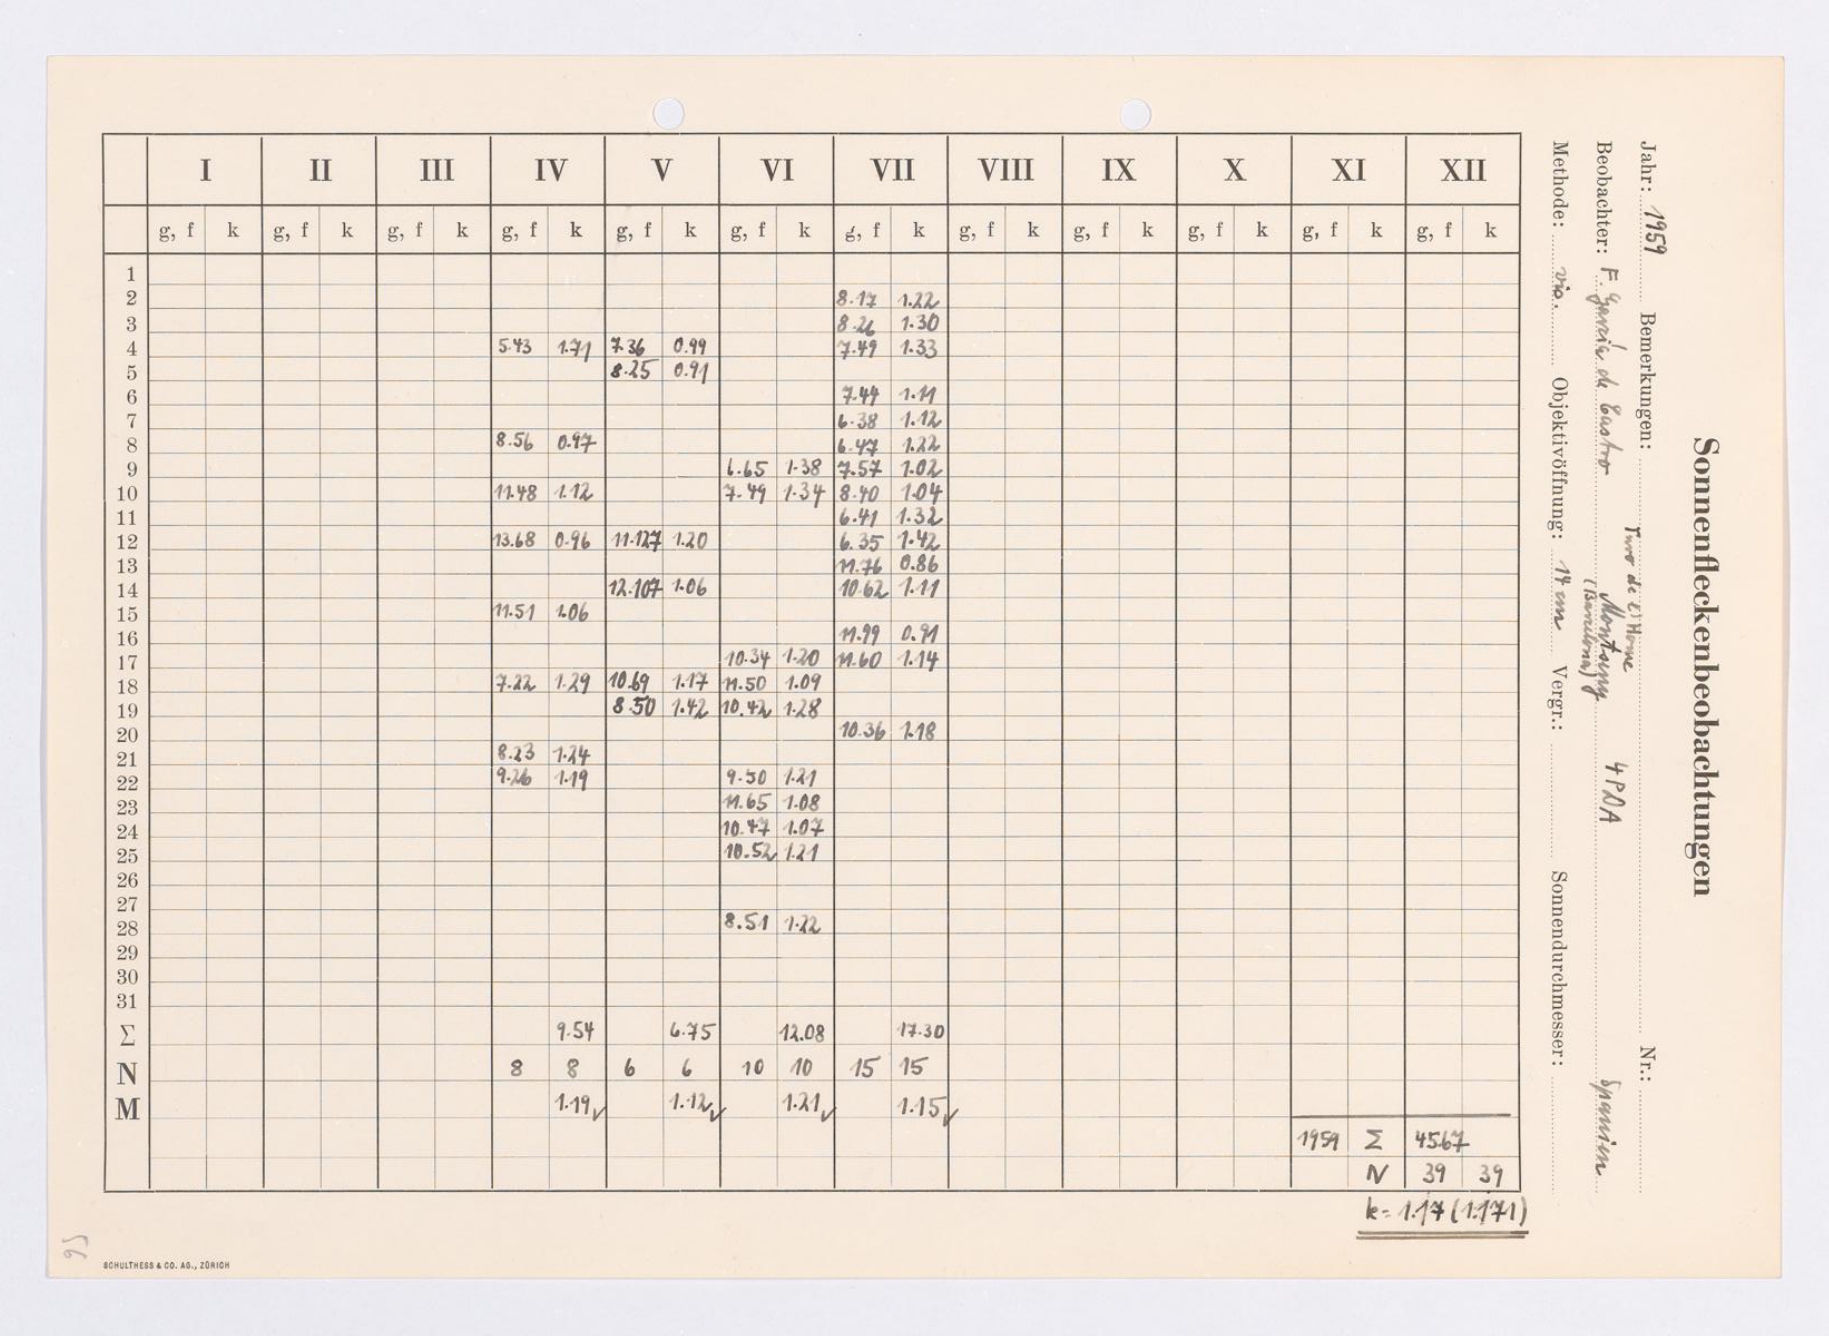 Sonnenfleckenbeobachtungen
Jahr: 1959 Bemerkungen: Nr.:
Beobachter: F. García de Castro Turó de l'Home Montseny (Barcelona) 4PDA Spanien
Methode: vis. Objektivöffnung: 14 cm Vergr.: Sonnendurchmesser:
I II III IV V VI VII VIII IX X XI XII
g, f k g, f k g, f k g, f k g, f k g, f k g, f k g, f k g, f k g, f k g, f k g, f k
1
2 8.17 1.22
3 8.26 1.30
4 5.43 1.71 7.36 0.99 7.49 1.33
5 8.25 0.91
6 7.44 1.11
7 6.38 1.12
8 8.56 0.97 6.47 1.22
9 6.65 1.38 7.57 1.02
10 11.48 1.12 7.49 1.34 8.40 1.04
11 6.41 1.32
12 13.68 0.96 11.127 1.20 6.35 1.42
13 11.76 0.86
14 12.107 1.06 10.62 1.11
15 11.51 1.06
16 11.99 0.91
17 10.34 1.20 11.60 1.14
18 7.22 1.29 10.69 1.17 11.50 1.09
19 8.50 1.42 10.42 1.28
20 10.36 1.18
21 8.23 1.24
22 9.26 1.19 9.50 1.21
23 11.65 1.08
24 10.47 1.07
25 10.52 1.21
26
27
28 8.51 1.22
29
30
31
Σ 9.54 6.75 12.08 17.30
N 8 8 6 6 10 10 15 15
M 1.19 ✓ 1.12 ✓ 1.21 ✓ 1.15 ✓
1959 Σ 45.67
N 39 39
k = 1.17 (1.171)
95
SCHULTHESS & CO. AG., ZÜRICH